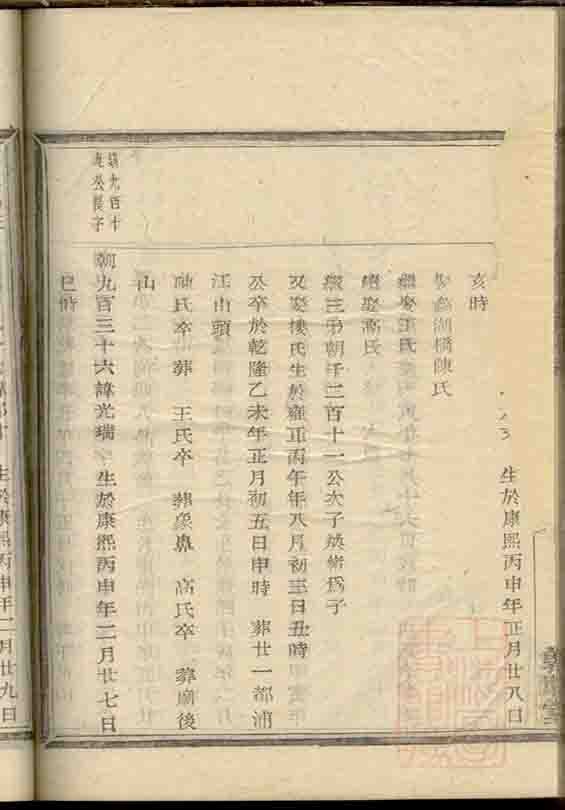 生於康熙丙申年正月廿八日
亥時
湖橋陳氏
繼娶王氏
繼娶高氏
繼三弟朝千二百十一公次子煥緒爲子
又娶樓氏生於雍正丙午年八月初三日丑時
公卒於乾隆乙未年正月初五日申時 葬廿一都浦
江山頭
陳氏卒 葬 王氏卒 葬象鼻 高氏卒 葬廟後
山
朝九百三十六諱光瑞 生於康熙丙申年二月廿七日
巳時
九百十
公長子
生於康熙丙申年二月廿九日